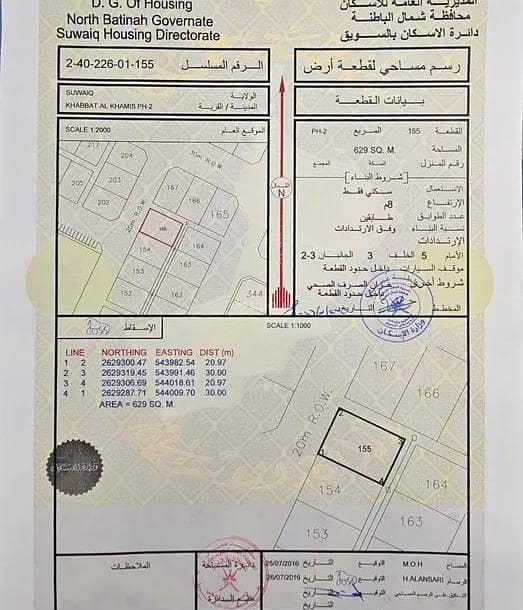 D. G. Of Housing
North Batinah Governate
Suwaiq Housing Directorate
المديرية العامة للإسكان
محافظة شمال الباطنة
دائرة الاسكان بالسويق
2-40-226-01-155 الرقم المسلسل
رسم مساحي لقطعة أرض
SUWAIQ الولاية
KHABBAT AL KHAMIS PH-2 المدينة / القرية
بيانات القطعة
SCALE 1:2000 الموقع العام
217
204
205
203
202
30m R.O.W.
20m R.O.W.
167
166
165
155
164
154
163
153
152
162
344
الشمال
N
القطعة 155 المربع PH-2
المساحة 629 SQ. M.
رقم المنزل السكة المجمع
شروط البناء
الاستعمال سكني فقط
الإرتفاع 8م
عدد الطوابق طابقين
نسبة البناء وفق الارتدادات
الإرتدادات
الأمام 5 الخلف 3 الجانبان 3-2
موقف السيارات داخل حدود القطعة
شروط أخرى خزان الصرف الصحي
داخل حدود القطعة
المخطط التاريخ
وزارة الإسكان
الإسقاط
SCALE 1:1000
LINE NORTHING EASTING DIST (m)
1 2 2629300.47 543982.54 20.97
2 3 2629319.45 543991.46 30.00
3 4 2629306.69 544018.61 20.97
4 1 2629287.71 544009.70 30.00
AREA = 629 SQ. M.
167
166
20m R.O.W.
2
3
155
1
4
164
154
163
153
الملاحظات
25/07/2016 التاريخ التوقيع M.O.H المساح
26/07/2016 التاريخ التوقيع H.ALANSARI التدقيق على الرسم المساحي
التاريخ التوقيع
التاريخ